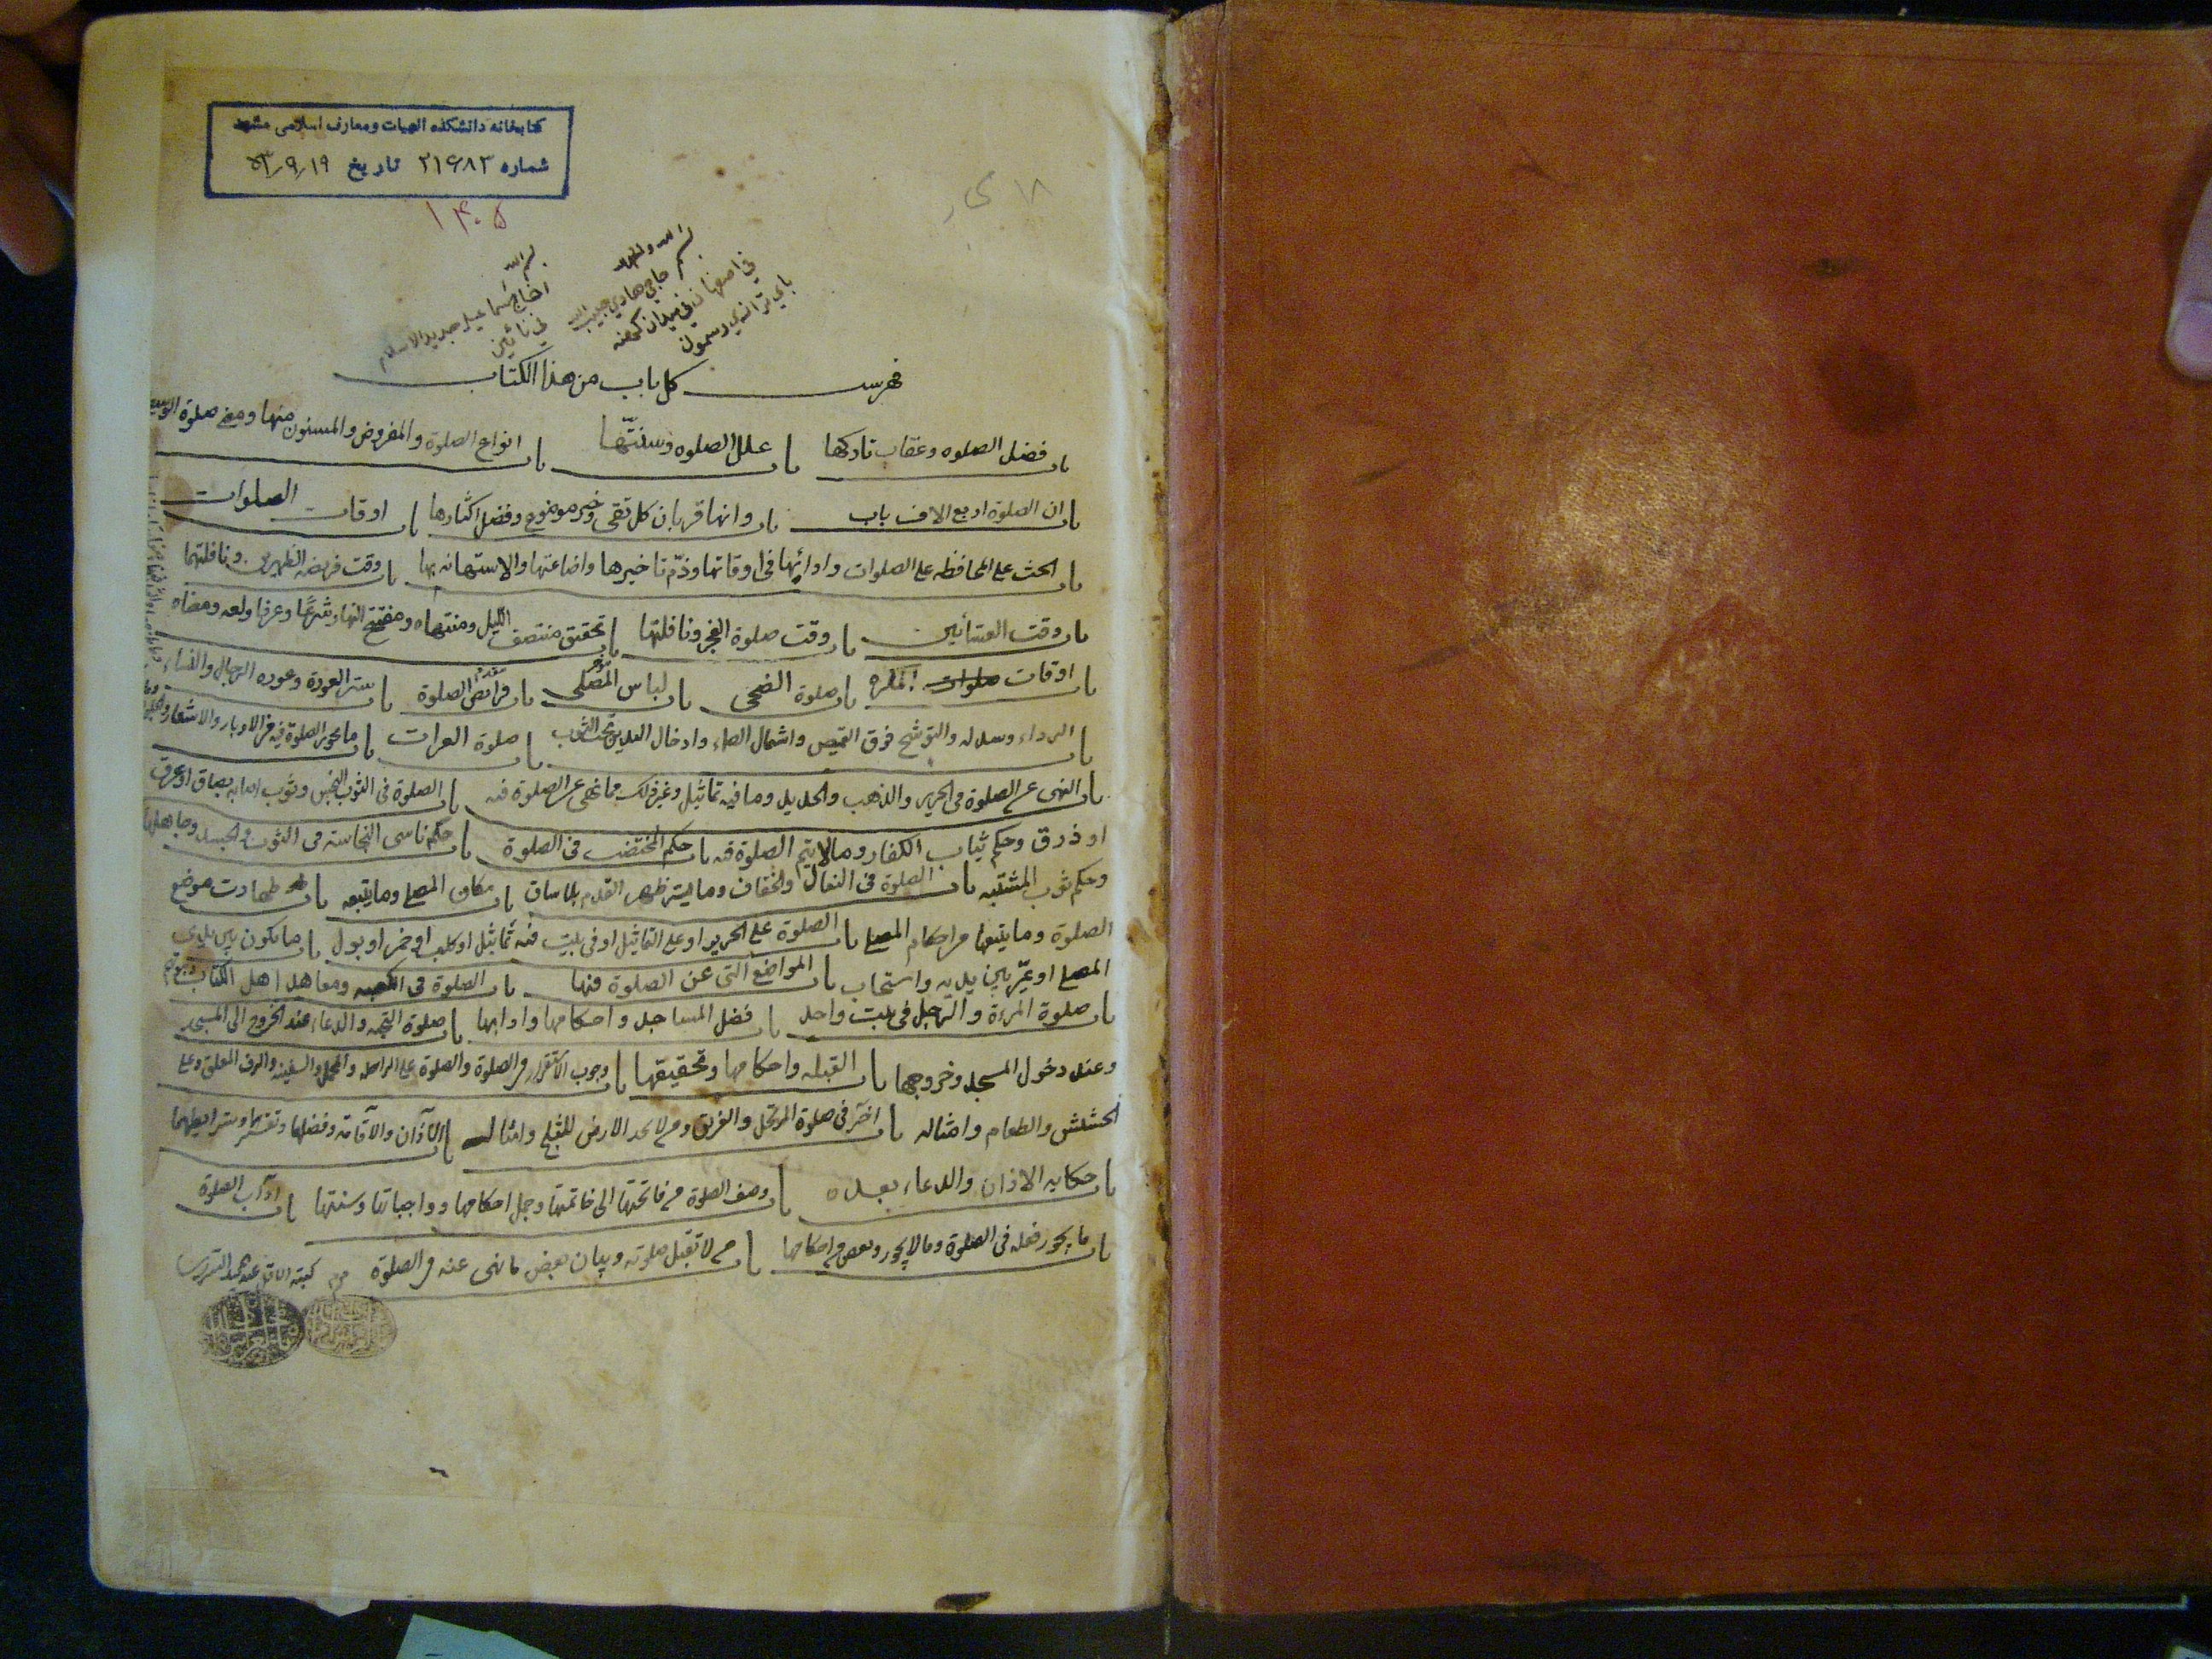 کتابخانه دانشکده الهیات ومعارف اسلامی مشهد
شماره ۲۱۶۸۳ تاریخ ۵۳٫۹٫۱۹
۱۴۰۵
۱۸
بسم الله
حاجي هادي حبيب الله
في اصفهان في ميدان كهنه
بسم الله
جديد الاسلام
في نائين
فهرست كل باب من هذا الكتاب
باب فضل الصلوه وعقاب تاركها باب علل الصلوه وسننّها باب انواع الصلوة والمفروض والمسنون منها ومعنى صلوة الوسطى
باب ان الصلوة اربع الاف باب باب وانها قربان كل تقى وخير موضوع وفضل اكثارها باب اوقات الصلوات
باب الحث على المحافظه على الصلوات وادائها فى اوقاتها وذّم تاخيرها واضاعتها والاستهانه بها باب وقت فريضه الظهرين ونافلتهما
باب وقت العشائين باب وقت صلوة الفجر ونافلتها باب تحقيق منتصف الليل ومنتهاه ومفتتح النهار شرعًا وعرفا ولغه ومعناه
باب اوقات المكرهه باب صلوة الضحى باب لباس المصلى باب فرائض الصلوة باب ستر العورة وعوره الرجال والنساء
باب الرداء وسدله والتوشح فوق القميص واشتمال الصماء وادخال اليدين تحت الثوب باب صلوة العرات باب ما يجوز الصلوة فيه من الاوبار والاشعار
باب النهى عن الصلوة فى الحرير والذهب والحديد وما فيه تماثيل وغير ذلك مما نهى عن الصلوة فيه باب الصلوة فى الثوب النجس وثوب اصابه بصاق او عرق
او ذرق وحكم ثياب الكفار وما لا يتم الصلوة فيه باب حكم المختضب فى الصلوة باب حكم ناسى النجاسة فى الثوب والجسد وجاهلها
وحكم ثوب المشتبه باب الصلوة فى النعال والخفاف وما يستر ظهر القدم بلا ساق باب مكان المصلى وما يتبعه باب طهارت موضع
الصلوة وما يتبعها من احكام المصلى باب الصلوة على الحرير او على التماثيل او فى بيت فيه تماثيل او كلب او خمر او بول باب ما يكون بين يدى
المصلى او يمّر بين يديه واستحباب باب المواضع التى عن الصلوة فيها باب الصلوة فى الكعبه ومعاهد اهل الكتاب وبيوتهم
باب صلوة المرءة والرجل فى بيت واحد باب فضل المساجد واحكامها وادابها باب صلوة التحيه والدعاء عند الخروج الى المسجد
وعند دخول المسجد وخروجها باب القبله واحكامها وتحقيقها باب وجوب الاستقرار فى الصلوة والصلوة على الراحله والمحمل والسفينه والرف المعلق وعلى
الحشيش والطعام وامثاله باب اخر فى صلوة الموتحل والغريق ومن لا يجد الارض للثلج وامثاله باب الاذان والاقامة وفضلهما وتفسيرهما وشرايطهما
باب حكايه الاذان والدعاء بعده باب وصف الصلوة من فاتحتها الى خاتمتها وجمل احكامها وواجباتها وسننها باب اداب الصلوة
باب ما يجوز فعله فى الصلوة وما لا يجوز وبعض احكامها باب من لا تقبل صلوته وبيان بعض ما نهى عنه فى الصلوة